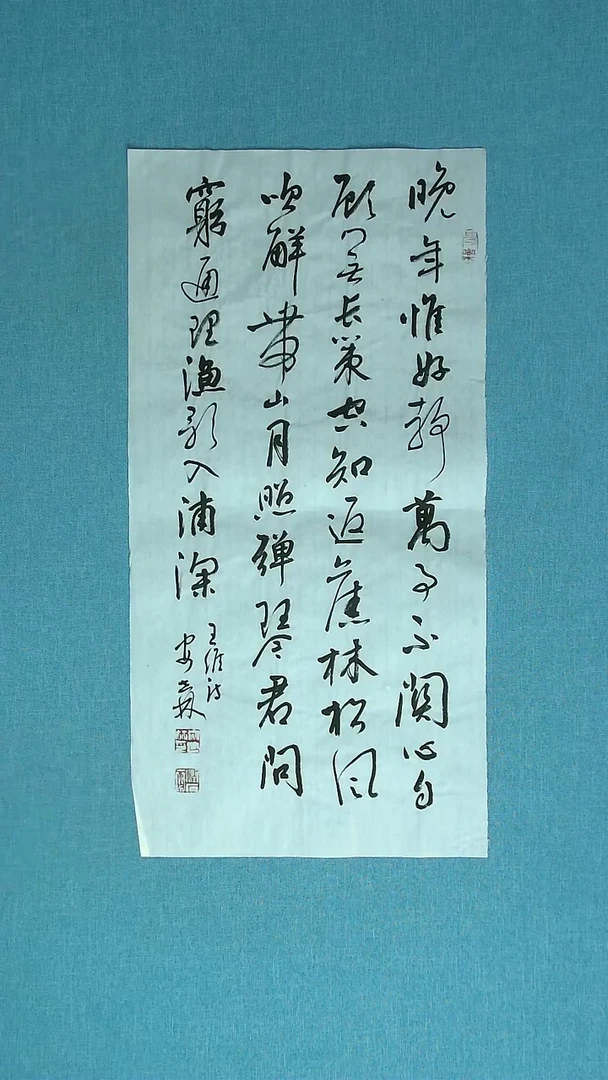 晚年惟好静萬事不關心自
顧無長策空知返舊林松風
吹解帶山月照彈琴君問
窮通理漁歌入浦深
王維詩